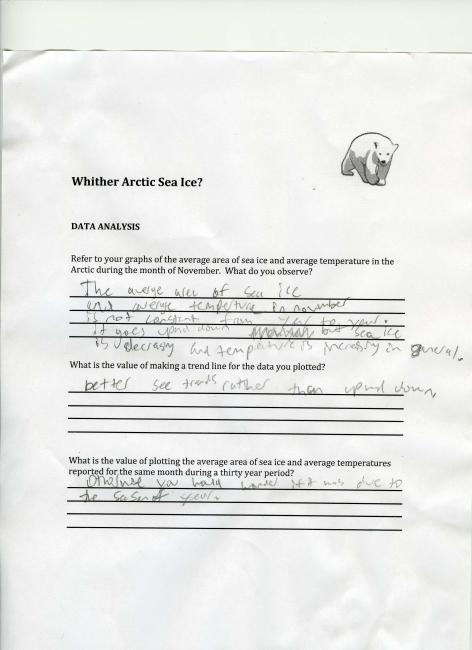 Whither Arctic Sea Ice?
DATA ANALYSIS
Refer to your graphs of the average area of sea ice and average temperature in the
Arctic during the month of November. What do you observe?
The averge area of sea ice
and average temperture in november
is not constant from year to year.
it goes up and down but sea ice
is decreasing and temperature is increasing in general.
What is the value of making a trend line for the data you plotted?
better see trends rather than up and down
What is the value of plotting the average area of sea ice and average temperatures
reported for the same month during a thirty year period?
Otherwise you would wonder if it was due to
the season of year.